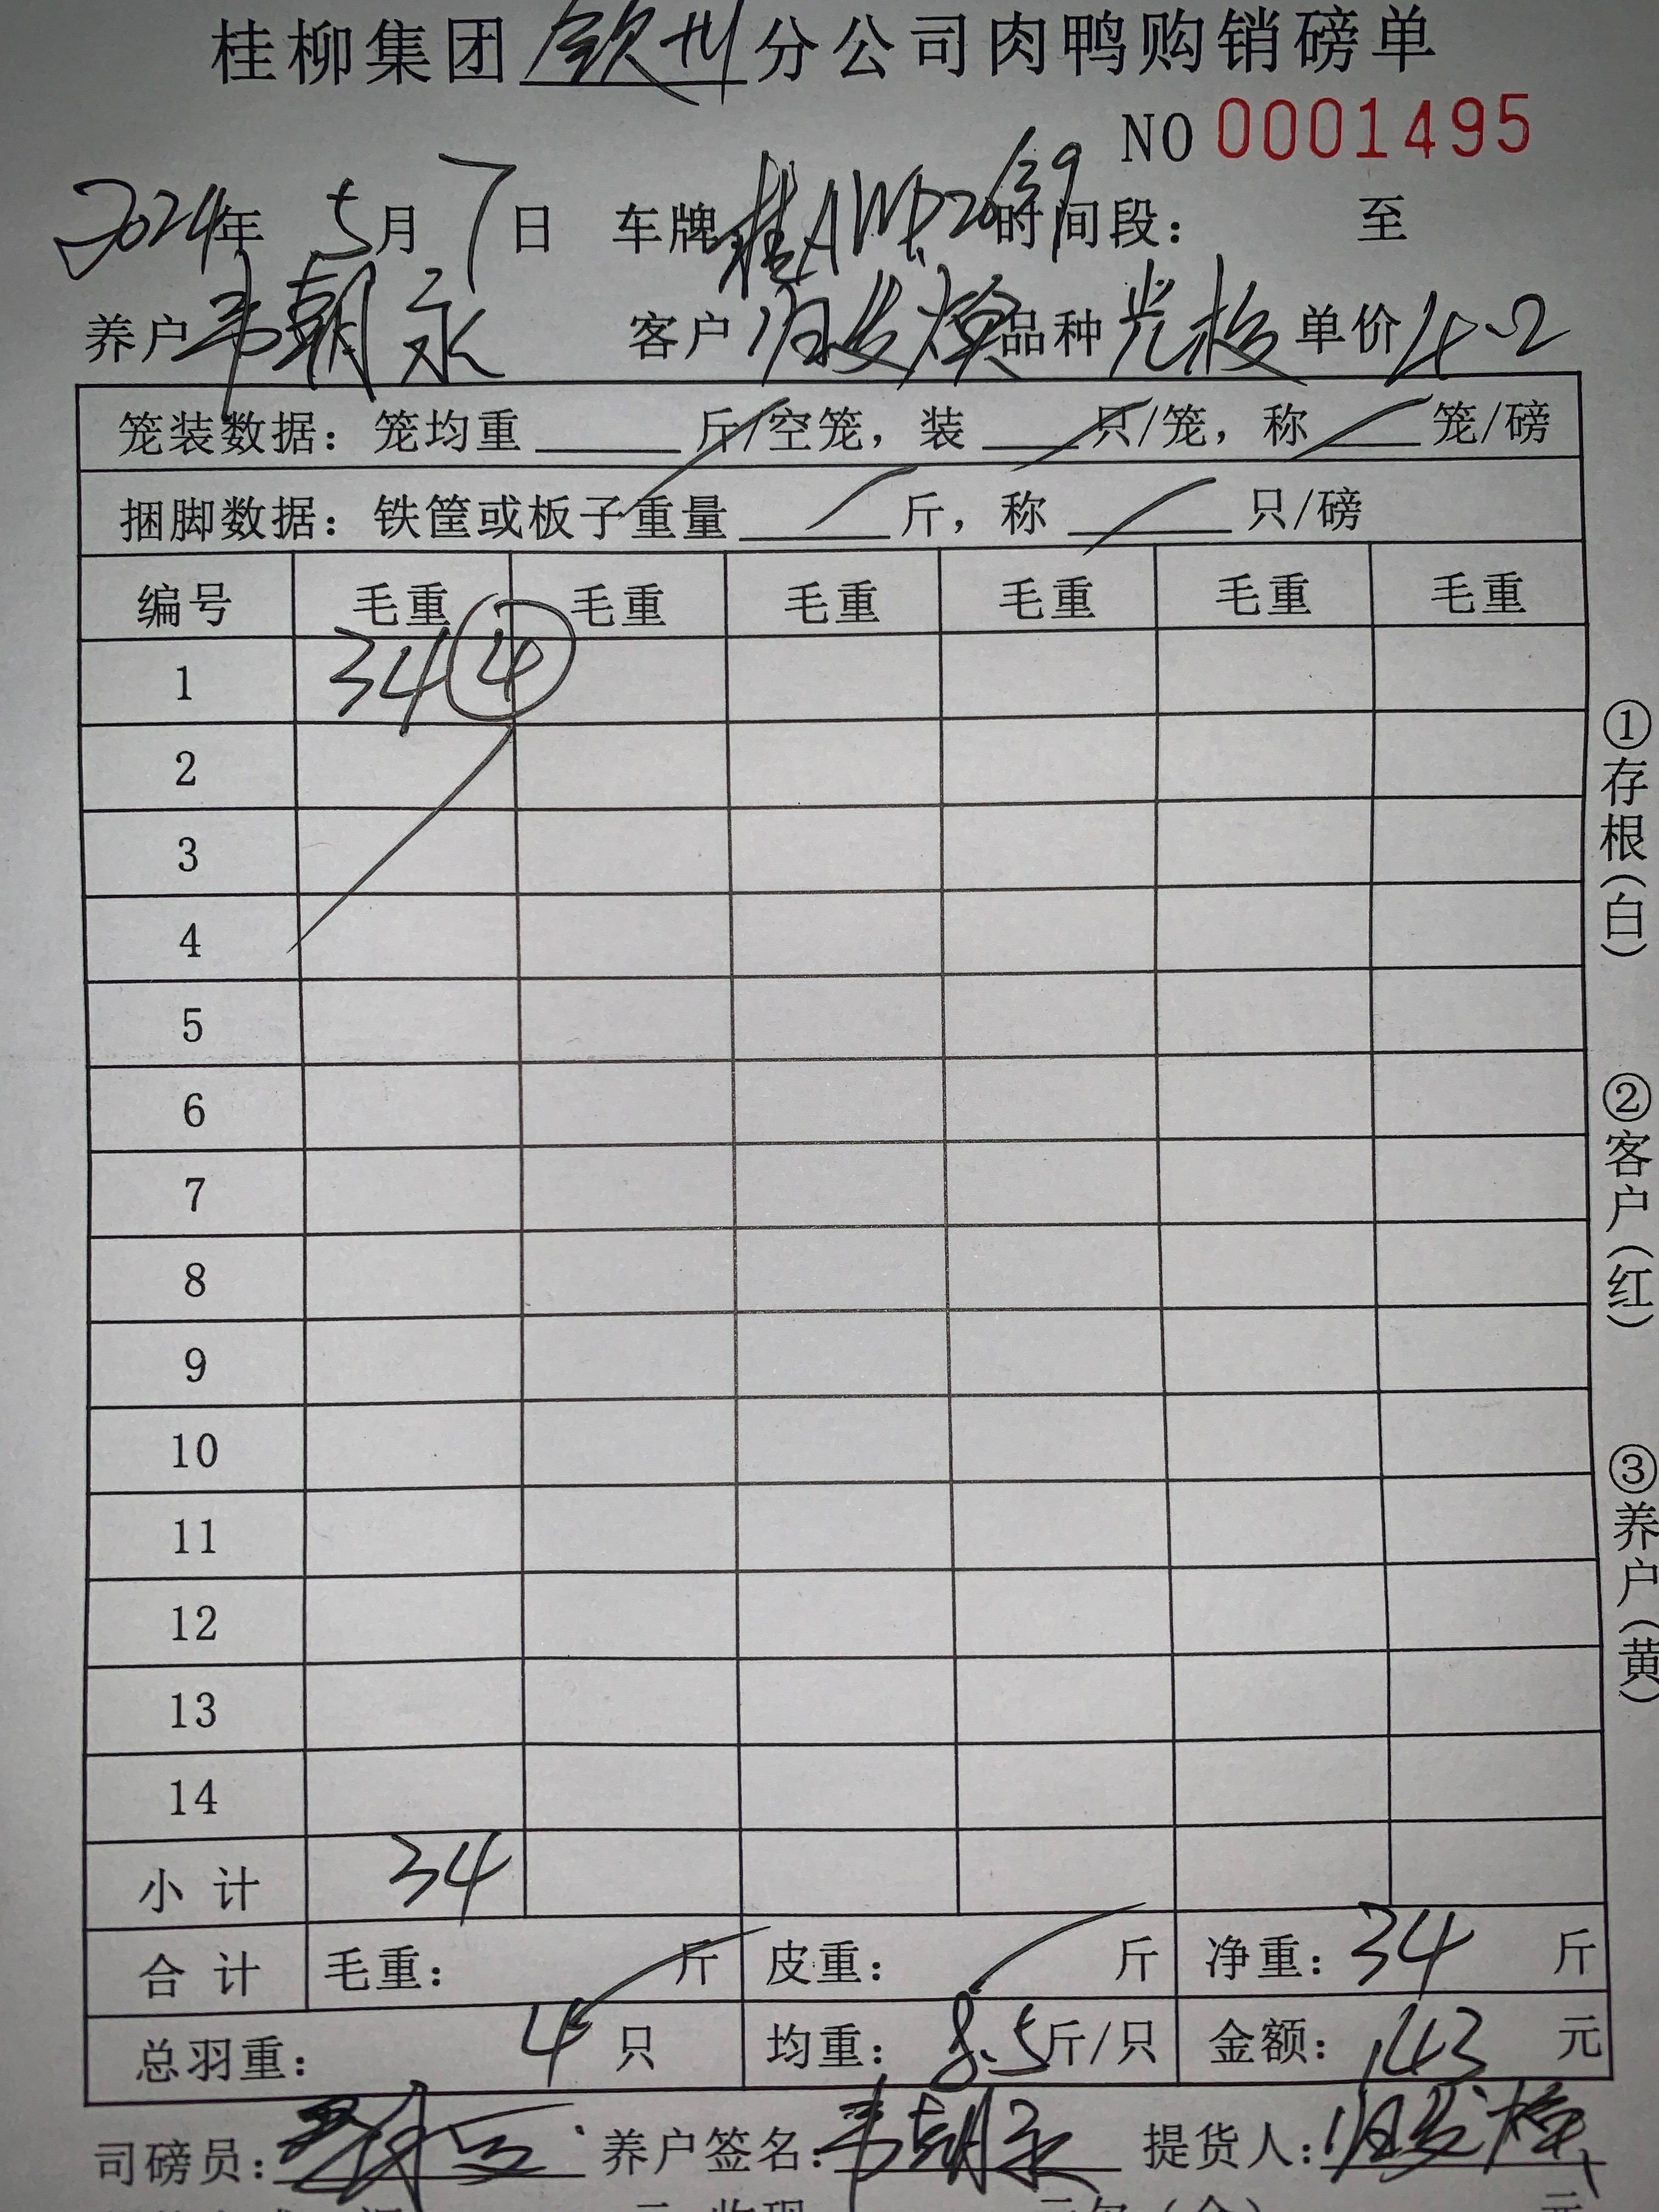 桂柳集团钦州分公司肉鸭购销磅单
NO 0001495
2024年 5月 7日 车牌 桂A 时间段: 至
养户 韦朝永 客户 品种 单价 4.2
笼装数据: 笼均重 斤/空笼, 装 只/笼, 称 笼/磅
捆脚数据: 铁筐或板子重量 斤, 称 只/磅
编号 毛重 毛重 毛重 毛重 毛重 毛重
1 34 ④
2
3
4
5
6
7
8
9
10
11
12
13
14
小计 34
合计 毛重: 斤 皮重: 斤 净重: 34 斤
总羽重: 4 只 均重: 8.5 斤/只 金额: 143 元
司磅员: 养户签名: 韦朝永 提货人:
①存根(白)
②客户(红)
③养户(黄)